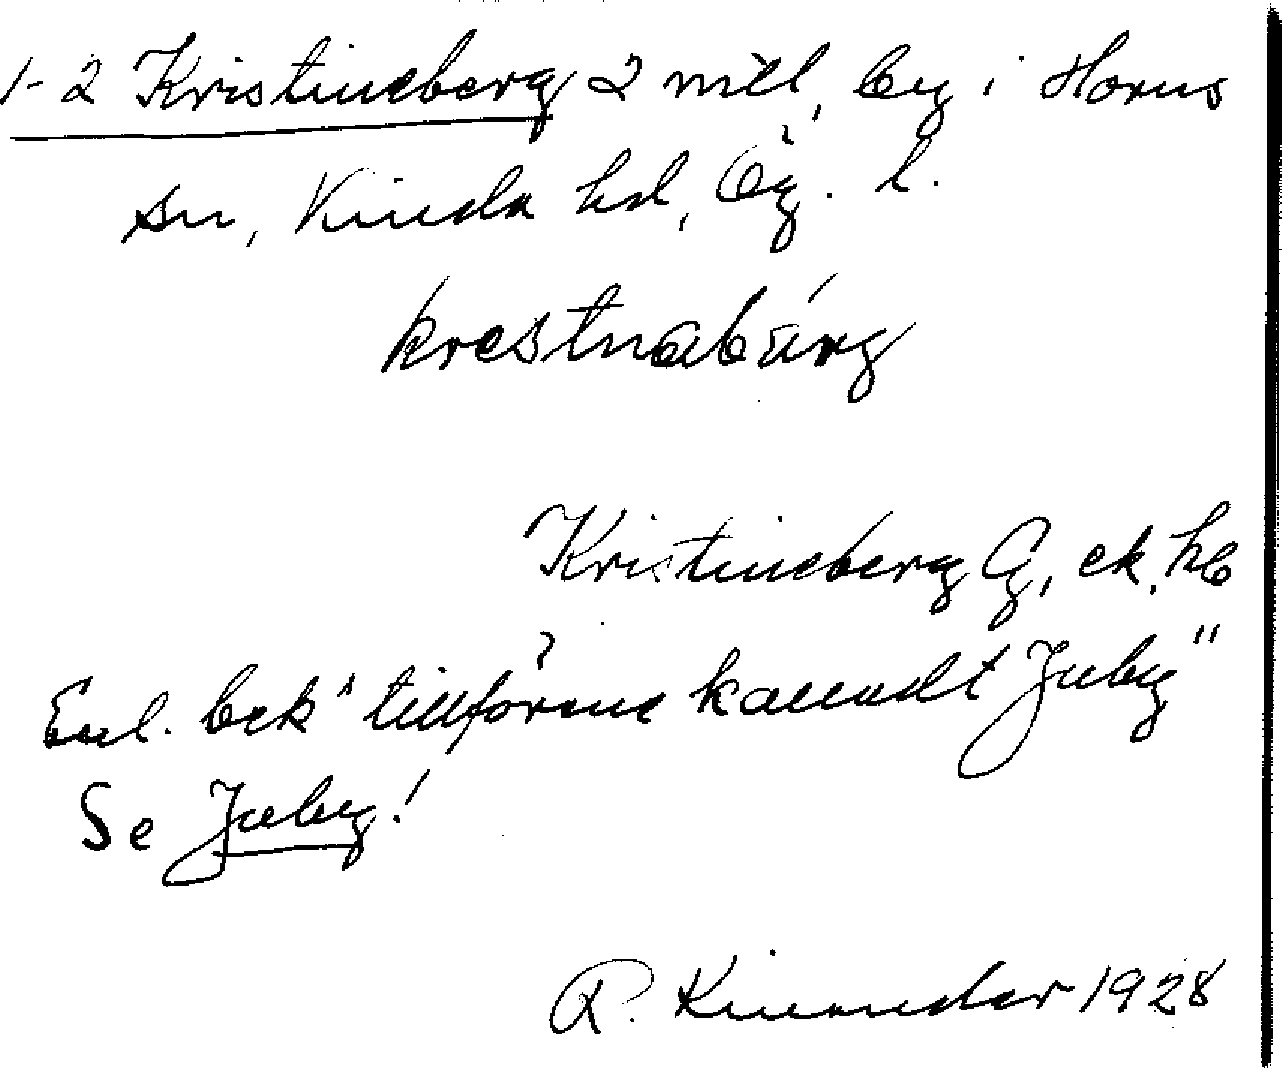 1-2 Kristineberg 2 mtl, by i Horns
sn, Kinda hd, Ög. l.
krestnabärg
Kristineberg G, ek, hb
Enl. bek "tillförene kalladt Juby"
Se Juby!
R. Kinander 1928